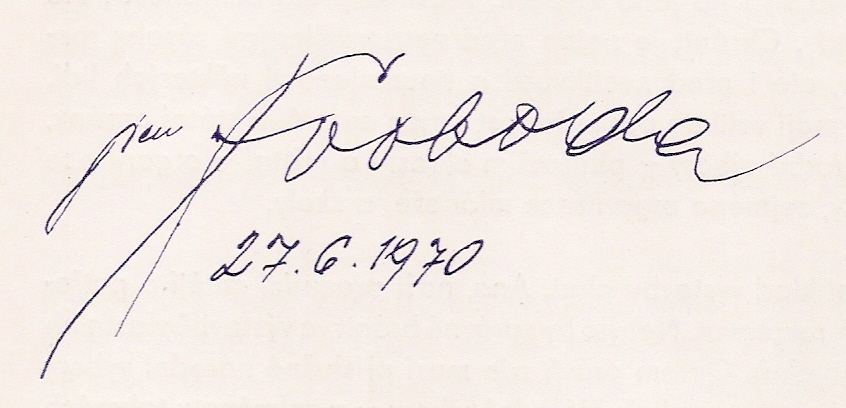 Svoboda
27.6.1970